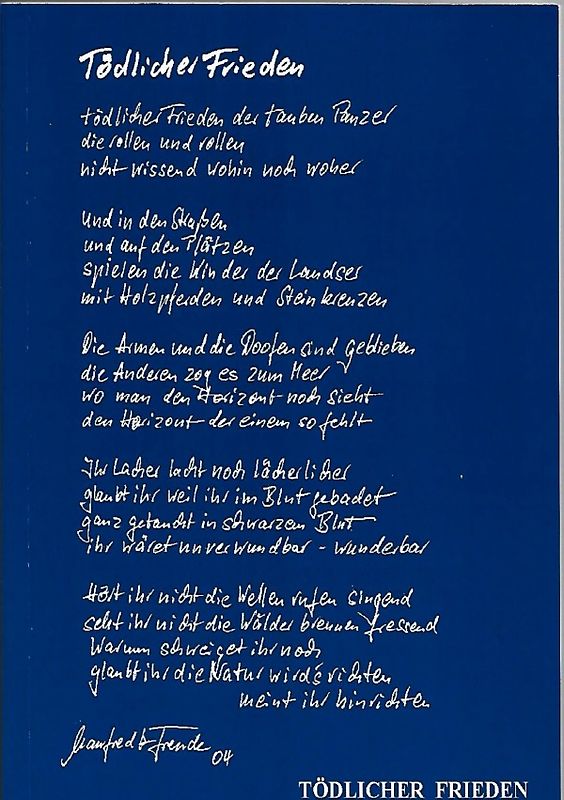 Tödlicher Frieden
tödlicher Frieden der tauben Panzer
die rollen und rollen
nicht wissend wohin noch woher
Und in den Straßen
und auf den Plätzen
spielen die Kinder der Landser
mit Holzpferden und Steinkreuzen
Die Armen und die Doofen sind geblieben
die Anderen zog es zum Meer
wo man den Horizont noch sieht
den Horizont der einem so fehlt
Ihr Lacher lacht noch lächerlicher
glaubt ihr weil ihr im Blut gebadet
ganz getaucht in schwarzem Blut
ihr wäret unverwundbar - wunderbar
Hört ihr nicht die Wellen rufen singend
seht ihr nicht die Wälder brennen fressend
Warum schweiget ihr noch
glaubt ihr die Natur wird's richten
meint ihr hinrichten
Manfred 04
TÖDLICHER FRIEDEN